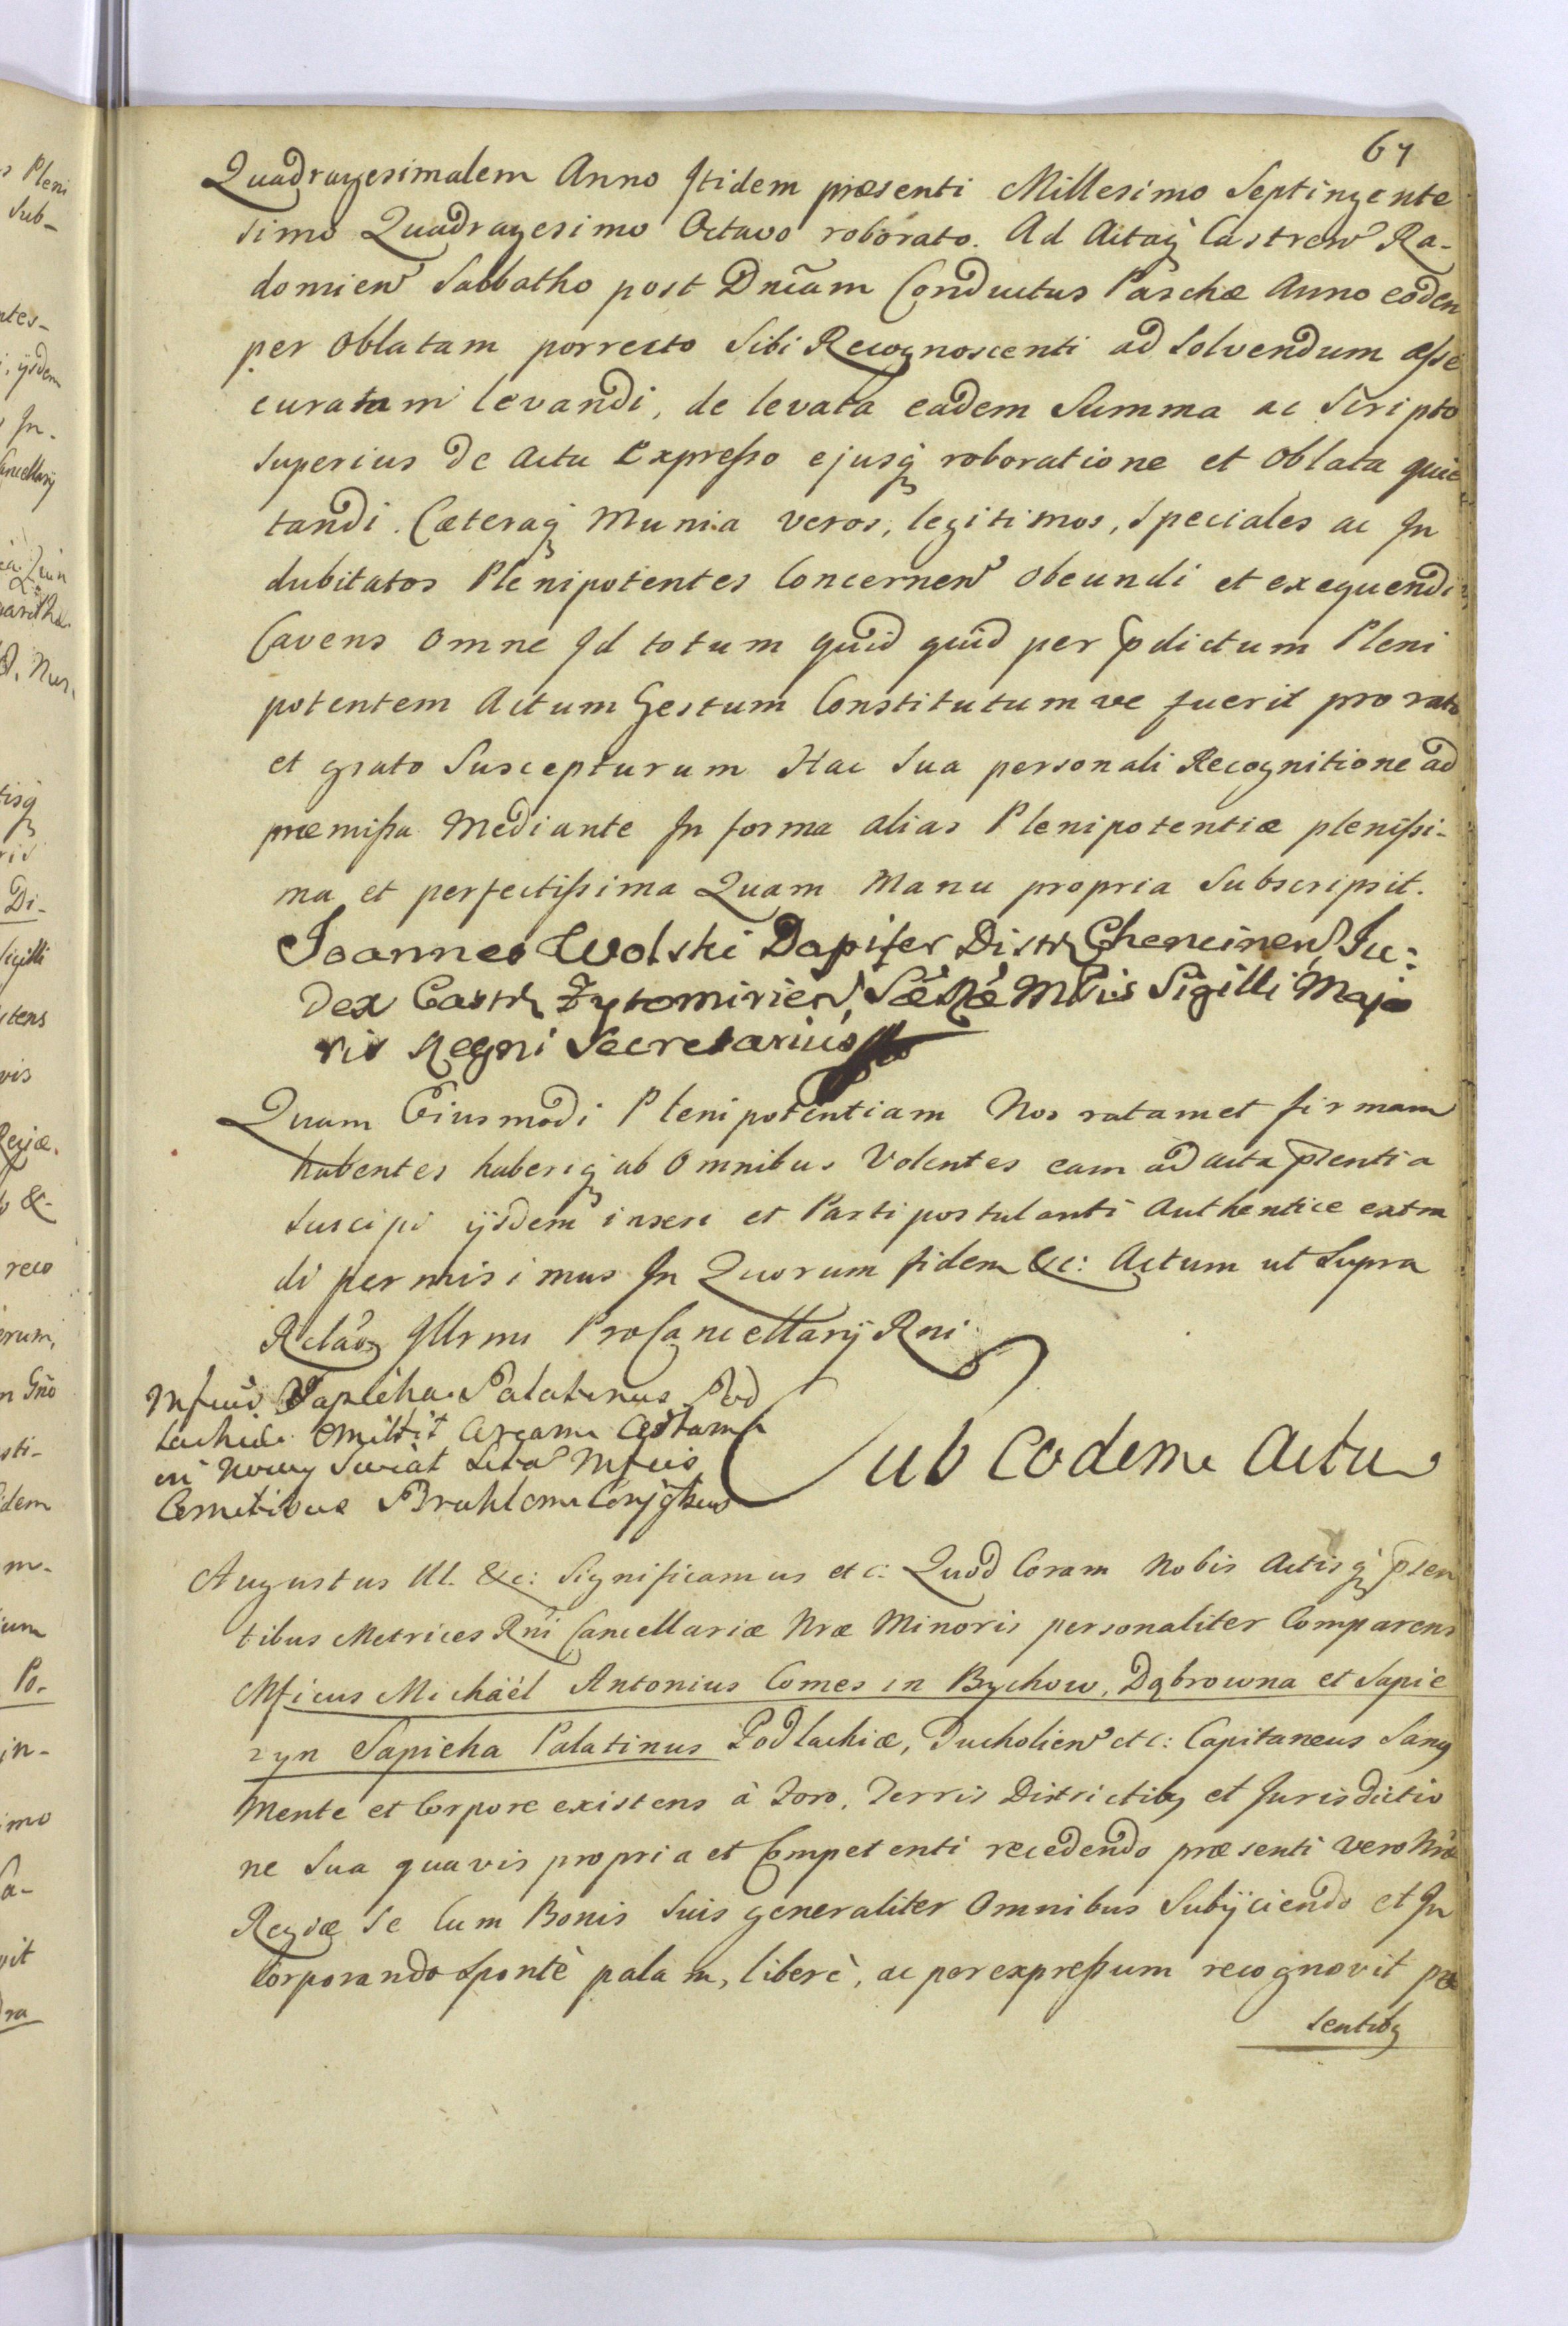 67
Quadragesimalem Anno Itidem præsenti Millesimo Septingente
simo Quadragesimo Octavo roborato. Ad Actaq̢ Castren̄ Ra-
domien̄ Sabbatho post Dnĩcam Conductus Paschæ Anno eodem
per Oblatam porrecto Sibi Recognoscenti ad Solvendum asse
curatam levandi, de levata eadem Summa ac Scripto
Superius de Actu Expresso ejusq̢ roboratione et Oblata quie
tandi. Cæteraq̢ Munia veros, legitimos, Speciales ac In
dubitatos Plenipotentes Concernen̄ Obeundi et exequendi
Cavens Omne Id totum quid quid per p̄dictum Pleni
potentem Actum Gestum Constitutum ve fuerit pro rato
et grato Suscepturum Hac Sua personali Recognitione ad
præmissa Mediante In forma alias Plenipotentiæ plenissi-
ma et perfectissima Quam Manu propria Subscripsit.
Joannes Wolski Dapifer Distr Chencinen̄, Ju:
dex Castr Zytomirien̄, Sæ Ræ Mtis Sigilli Majo
ris Regni Secretarius
Quam Eiusmodi Plenipotentiam Nos ratam et firmam
habentes haberiq̢ ab Omnibus Volentes eam ad acta p̄sentia
Suscipi ijsdem inseri et Parti postulanti Authentice extra
di permisimus In Quorum fidem &c: Actum ut Supra
Relaõ Illrmi ProCancellarij Rni
Mfcus Sapieha Palatinus Pod
lachiæ Omittit Arcam
Comitibus Bruhlom Conjgbus
Sub Eodem Actu
Augustus III. &c: Significamus etc: Quod Coram Nobis Actisq̢ p̄sen
tibus Metrices Rni Cancellariæ Nræ Minoris personaliter Comparens
Mficus Michaël Antonius Comes in Bychow, Dąbrowna et Sapie
zyn Sapieha Palatinus Podlachiæ, Tucholien̄ etc: Capitaneus Sang
Mente et Corpore existens à Foro, Terris Districtibg et Jurisdictio
ne Sua quavis propria et Competenti recedendo præsenti vero Nræ
Regiæ Se Cum Bonis Suis generaliter Omnibus Subijciendo et In
Corporando Spontè palam, liberè, ac per expressum recognovit præ
sentibg